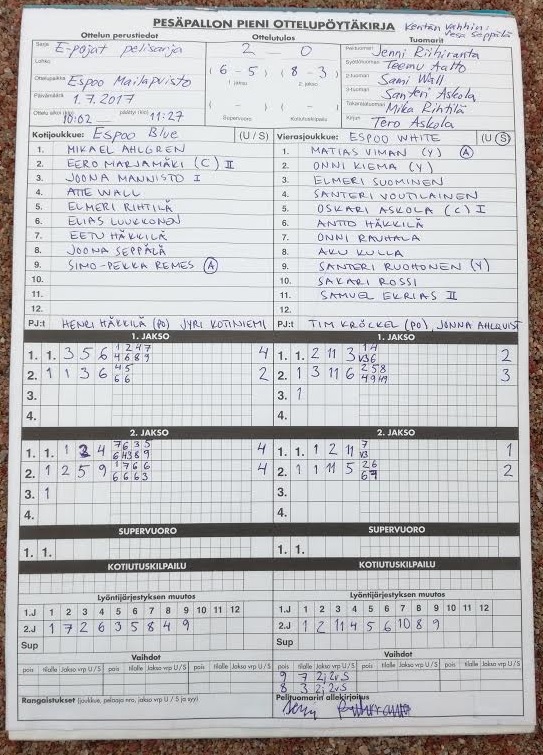 PESÄPALLON PIENI OTTELUPÖYTÄKIRJA
Kentän vanhin: Vesa Seppälä
Ottelun perustiedot
Sarja E-pojat pelisarja
Lohko
Ottelupaikka Espoo Mailapuisto
Päivämäärä 1.7.2017
Ottelu alkoi (klo) 10:02 — päättyi (klo) 11:27
Ottelutulos
2 - 0
( 6 - 5 ) ( 8 - 3 )
1. jakso 2. jakso
( - ) ( - )
Supervuoro Kotiutuskilpailu
Tuomarit
Pelituomari Jenni Riihiranta
Syöttötuomari Teemu Aatto
2-tuomari Sami Wall
3-tuomari Santeri Askola
Takarajatuomari Mika Rihtilä
Kirjuri Tero Askola
Kotijoukkue: Espoo Blue (U / S)
1. MIKAEL AHLGREN
2. EERO MARJAMÄKI (C) II
3. JOONA MANNISTO I
4. ATTE WALL
5. ELMERI RIHTILÄ
6. ELIAS LUUKKONEN
7. EETU HÄKKILÄ
8. JOONA SEPPÄLÄ
9. SIMO-PEKKA REMES (A)
10.
11.
12.
PJ:t HENRI HÄKKILÄ (PO) JYRI KOTINIEMI
Vierasjoukkue: ESPOO WHITE (U / S)
1. MATIAS VIMAN (Y) (A)
2. ONNI KIEMA (Y)
3. ELMERI SUOMINEN
4. SANTERI VOUTILAINEN
5. OSKARI ASKOLA (C) I
6. ANTTO HÄKKILÄ
7. ONNI RAUHALA
8. AKU KULLA
9. SANTERI RUOHONEN (Y)
10. SAKARI ROSSI
11. SAMUEL EKRIAS II
12.
PJ:t TIM KRÖCKEL (PO), JONNA AHLQVIST
1. JAKSO
1. 1. 3 5 6 1 2 4 7 4
4 6 8 9
2. 1 1 3 6 4 5 2
6 6
3.
4.
1. JAKSO
1. 1. 2 11 3 1 4 2
2. 1 3 11 6 2 5 8 3
3. 1
4.
2. JAKSO
1. 1. 1 4 7 6 3 5 4
2. 1 2 5 9 1 7 6 6 4
6 6 6 3
3. 1
4.
2. JAKSO
1. 1. 1 2 11 7 1
2. 1 1 11 5 2 6 2
6 7
3.
4.
SUPERVUORO
1. 1.
SUPERVUORO
1. 1.
KOTIUTUSKILPAILU
KOTIUTUSKILPAILU
Lyöntijärjestyksen muutos
1.J 1 2 3 4 5 6 7 8 9 10 11 12
2.J 1 7 2 6 3 5 8 4 9
Sup
Lyöntijärjestyksen muutos
1.J 1 2 3 4 5 6 7 8 9 10 11 12
2.J 1 2 11 4 5 6 10 8 9
Sup
Vaihdot
pois tilalle Jakso vrp U / S pois tilalle Jakso vrp U / S pois tilalle Jakso vrp U / S
Vaihdot
pois tilalle Jakso vrp U / S pois tilalle Jakso vrp U / S pois tilalle Jakso vrp U / S
9 7 2j 2v S
8 3 2j 2v S
Rangaistukset (joukkue, pelaaja nro, jakso vrp U / S ja syy)
Pelituomarin allekirjoitus